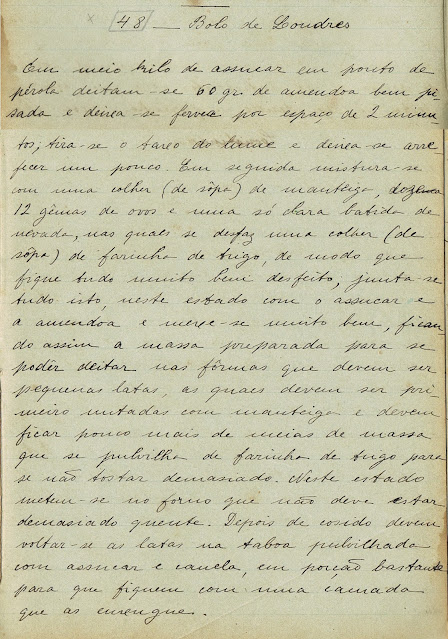 48 — Bolo de Londres
Em meio kilo de assucar em ponto de
pérola deitam-se 60 gr. de amendoa bem pi
sada e deixa-se ferver por espaço de 2 minu
tos; tira-se o taxo do lume e deixa-se arre
ficer um pouco. Em seguida mistura-se
com uma colher (de sôpa) de manteiga,
12 gêmas de ovos e uma só clara batida de
nevada, nas quaes se desfaz uma colher (de
sôpa) de farinha de trigo, de modo que
fique tudo muito bem desfeito, junta-se
tudo isto, neste estado com o assucar e
a amendoa e mexe-se muito bem, fican-
do assim a massa preparada para se
poder deitar nas fôrmas que devem ser
pequenas latas, as quaes devem ser pri
meiro untadas com manteiga e devem
ficar pouco mais de meias de massa
que se pulvilha de farinha de trigo para
se não tostar demasiado. Neste estado
metem-se no forno que não deve estar
demasiado quente. Depois de cosido devem
voltar-se as latas na taboa pulvilhada
com assucar e canela, em porção bastante
para que fiquem com uma camada
que as enxugue.